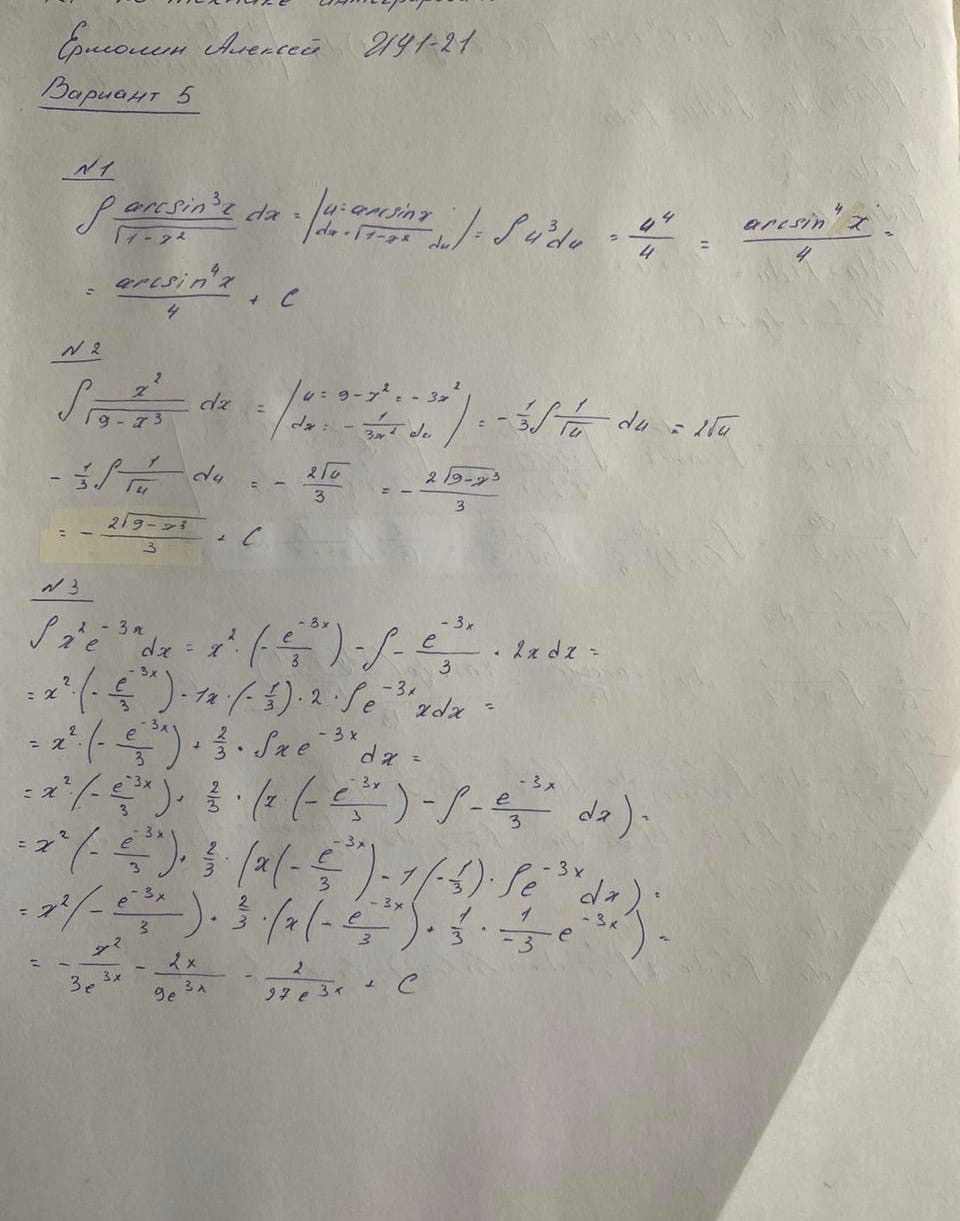 по технике интегрирова
Ермолин Алексей ИУ1-21
Вариант 5
N1
∫ arcsin³x/√(1-x²) dx = |u = arcsinx dx = √(1-x²) du| = ∫u³du = u⁴/4 = arcsin⁴x/4 =
= arcsin⁴x/4 + C
N2
∫ x²/√(9-x³) dx = |u = 9-x² = -3x² dx = -1/(3x²) du| = -1/3 ∫ 1/√u du = 2√u
-1/3 ∫ 1/√u du = -2√u/3 = -2√(9-x³)/3
= -2√(9-x³)/3 + C
N3
∫x²e^(-3x) dx = x²·(-e^(-3x)/3) - ∫ - e^(-3x)/3 · 2x dx =
= x²·(-e^(-3x)/3) - 1x·(-1/3)·2·∫e^(-3x) xdx =
= x²·(-e^(-3x)/3) + 2/3·∫xe^(-3x) dx =
= x²·(-e^(-3x)/3) + 2/3·(x·(-e^(-3x)/3) - ∫ - e^(-3x)/3 dx) =
= x²(-e^(-3x)/3) + 2/3·(x(-e^(-3x)/3) - 1(-1/3)·∫e^(-3x) dx) =
= x²(-e^(-3x)/3) + 2/3·(x(-e^(-3x)/3) + 1/3 · 1/-3 e^(-3x)) =
= -x²/3e^(3x) - 2x/9e^(3x) - 2/27e^(3x) + C